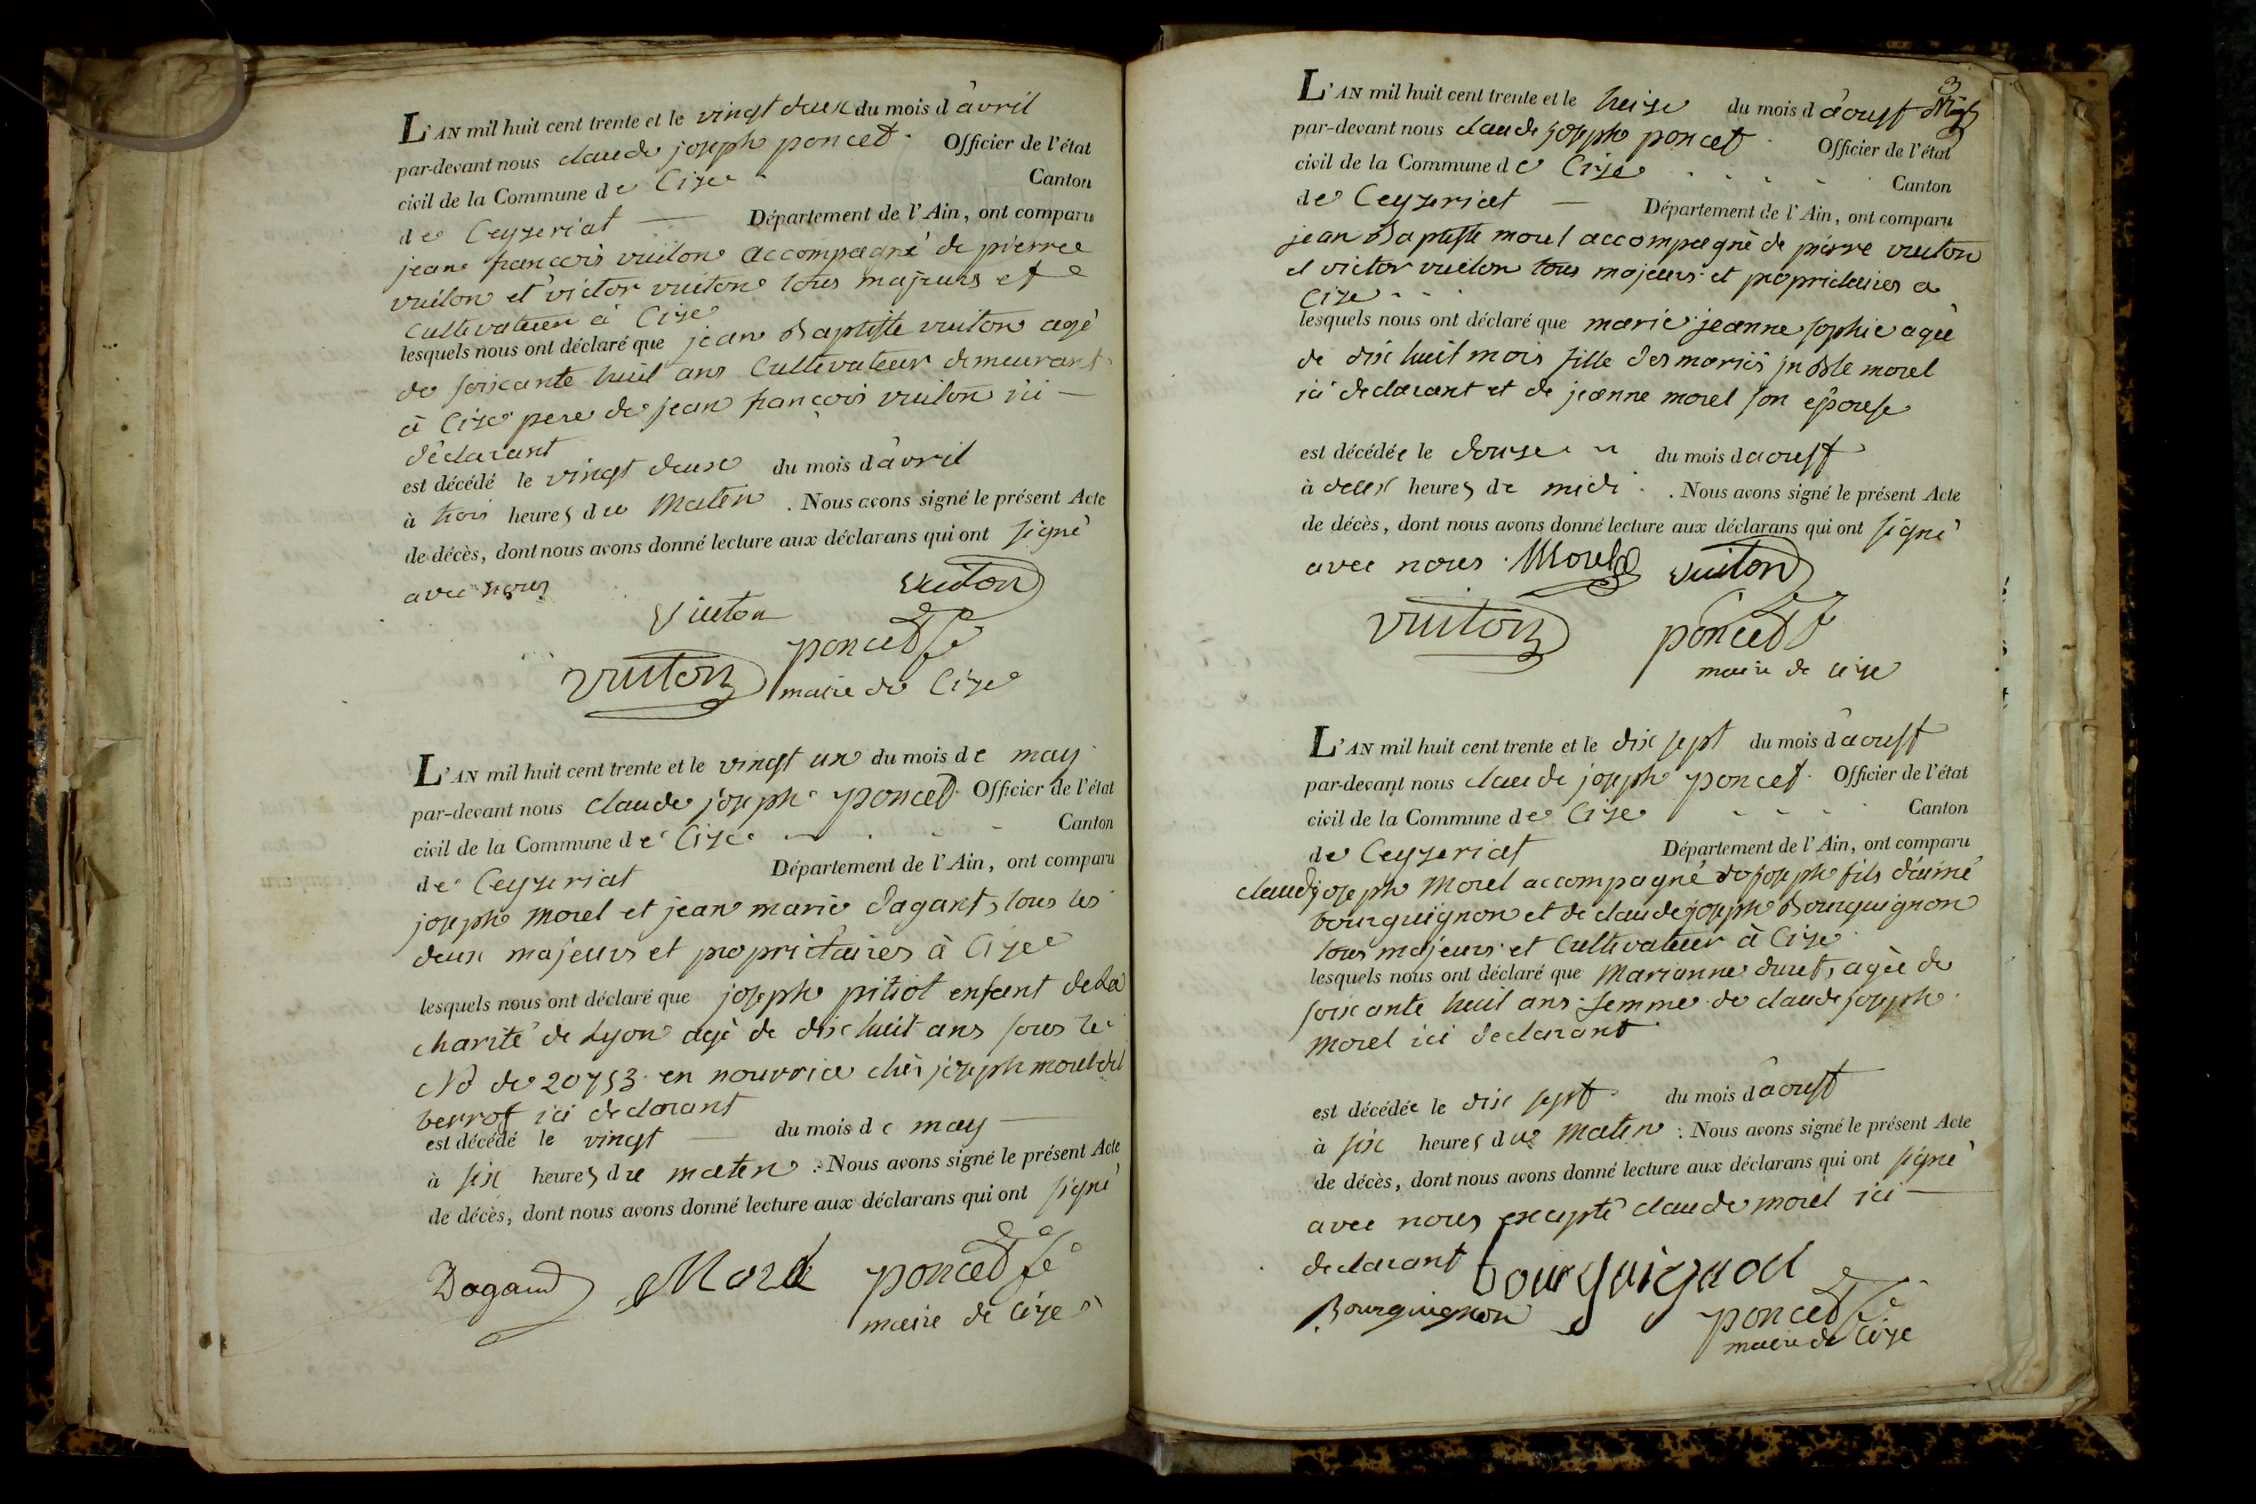 L'AN mil huit cent trente et le vingt deux du mois d avril
par-devant nous claude joseph poncet Officier de l'état
civil de la Commune de Cize Canton
de Ceyzeriat — Département de l'Ain, ont comparu
jean françois vuiton accompagné de pierre
vuiton et victor vuiton tous majeurs et
cultivateur à Cize
lesquels nous ont déclaré que jean Baptiste vuiton agé
de soixante huit ans Cultivateur demeurant
à Cize pere de jean françois vuiton ici —
déclarant
est décédé le vingt deux du mois d avril
à trois heures du Matin . Nous avons signé le présent Acte
de décès, dont nous avons donné lecture aux déclarans qui ont signé
avec nous
vuiton
Viuton
poncet
vuiton
maire de Cize
L'AN mil huit cent trente et le vingt un du mois de may
par-devant nous claude joseph poncet Officier de l'état
civil de la Commune de Cize Canton
de Ceyzeriat Département de l'Ain, ont comparu
joseph Morel et jean marie dagant, tous les
deux majeurs et proprietaires à Cize
lesquels nous ont déclaré que joseph pitiot enfant de La
charité de Lyon agé de dix huit ans sous le
No de 20753 en nourrice chès joseph morel dit
berrot ici declarant
est décédé le vingt — du mois de may —
à six heures du matin . Nous avons signé le présent Acte
de décès, dont nous avons donné lecture aux déclarans qui ont signé
Dagand Morel poncet
maire de Cize
3
L'AN mil huit cent trente et le treize du mois d aoust
par-devant nous claude joseph poncet Officier de l'état
civil de la Commune de Cize Canton
de Ceyzeriat — Département de l'Ain, ont comparu
jean Baptiste morel accompagné de pierre vuiton
et victor vuiton tous majeurs et proprietaires a
Cize
lesquels nous ont déclaré que marie jeanne sophie agée
de dix huit mois fille des mariés jn Bte morel
ici declarant et de jeanne morel son épouse
est décédée le douze du mois d aoust
à deux heures de midi . Nous avons signé le présent Acte
de décès, dont nous avons donné lecture aux déclarans qui ont signé
avec nous Morel vuiton
vuiton poncet
maire de cize
L'AN mil huit cent trente et le dix sept du mois d aoust
par-devant nous claude joseph poncet Officier de l'état
civil de la Commune de Cize Canton
de Ceyzeriat Département de l'Ain, ont comparu
claude joseph Morel accompagné de joseph fils d'aimé
bourguignon et de claude joseph Bourguignon
tous majeurs et Cultivateur à Cize
lesquels nous ont déclaré que Marianne duret, agée de
soixante huit ans femme de claude joseph
morel ici declarant
est décédée le dix sept du mois d aoust
à six heures du Matin . Nous avons signé le présent Acte
de décès, dont nous avons donné lecture aux déclarans qui ont signé
avec nous excepté claude morel ici —
declarant bourguignon
Bourguignon poncet
maire de Cize